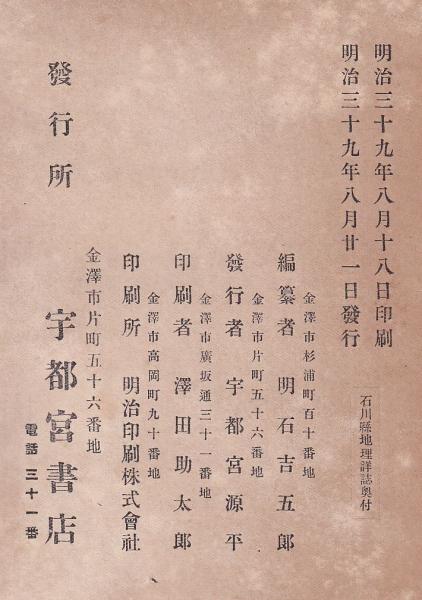 明治三十九年八月十八日印刷
明治三十九年八月廿一日發行
石川縣地理詳誌奥付
金澤市杉浦町百十番地
編纂者 明石吉五郎
金澤市片町五十六番地
發行者 宇都宮源平
金澤市廣坂通三十一番地
印刷者 澤田助太郎
金澤市高岡町九十番地
印刷所 明治印刷株式會社
金澤市片町五十六番地
發行所 宇都宮書店
電話 三十一番